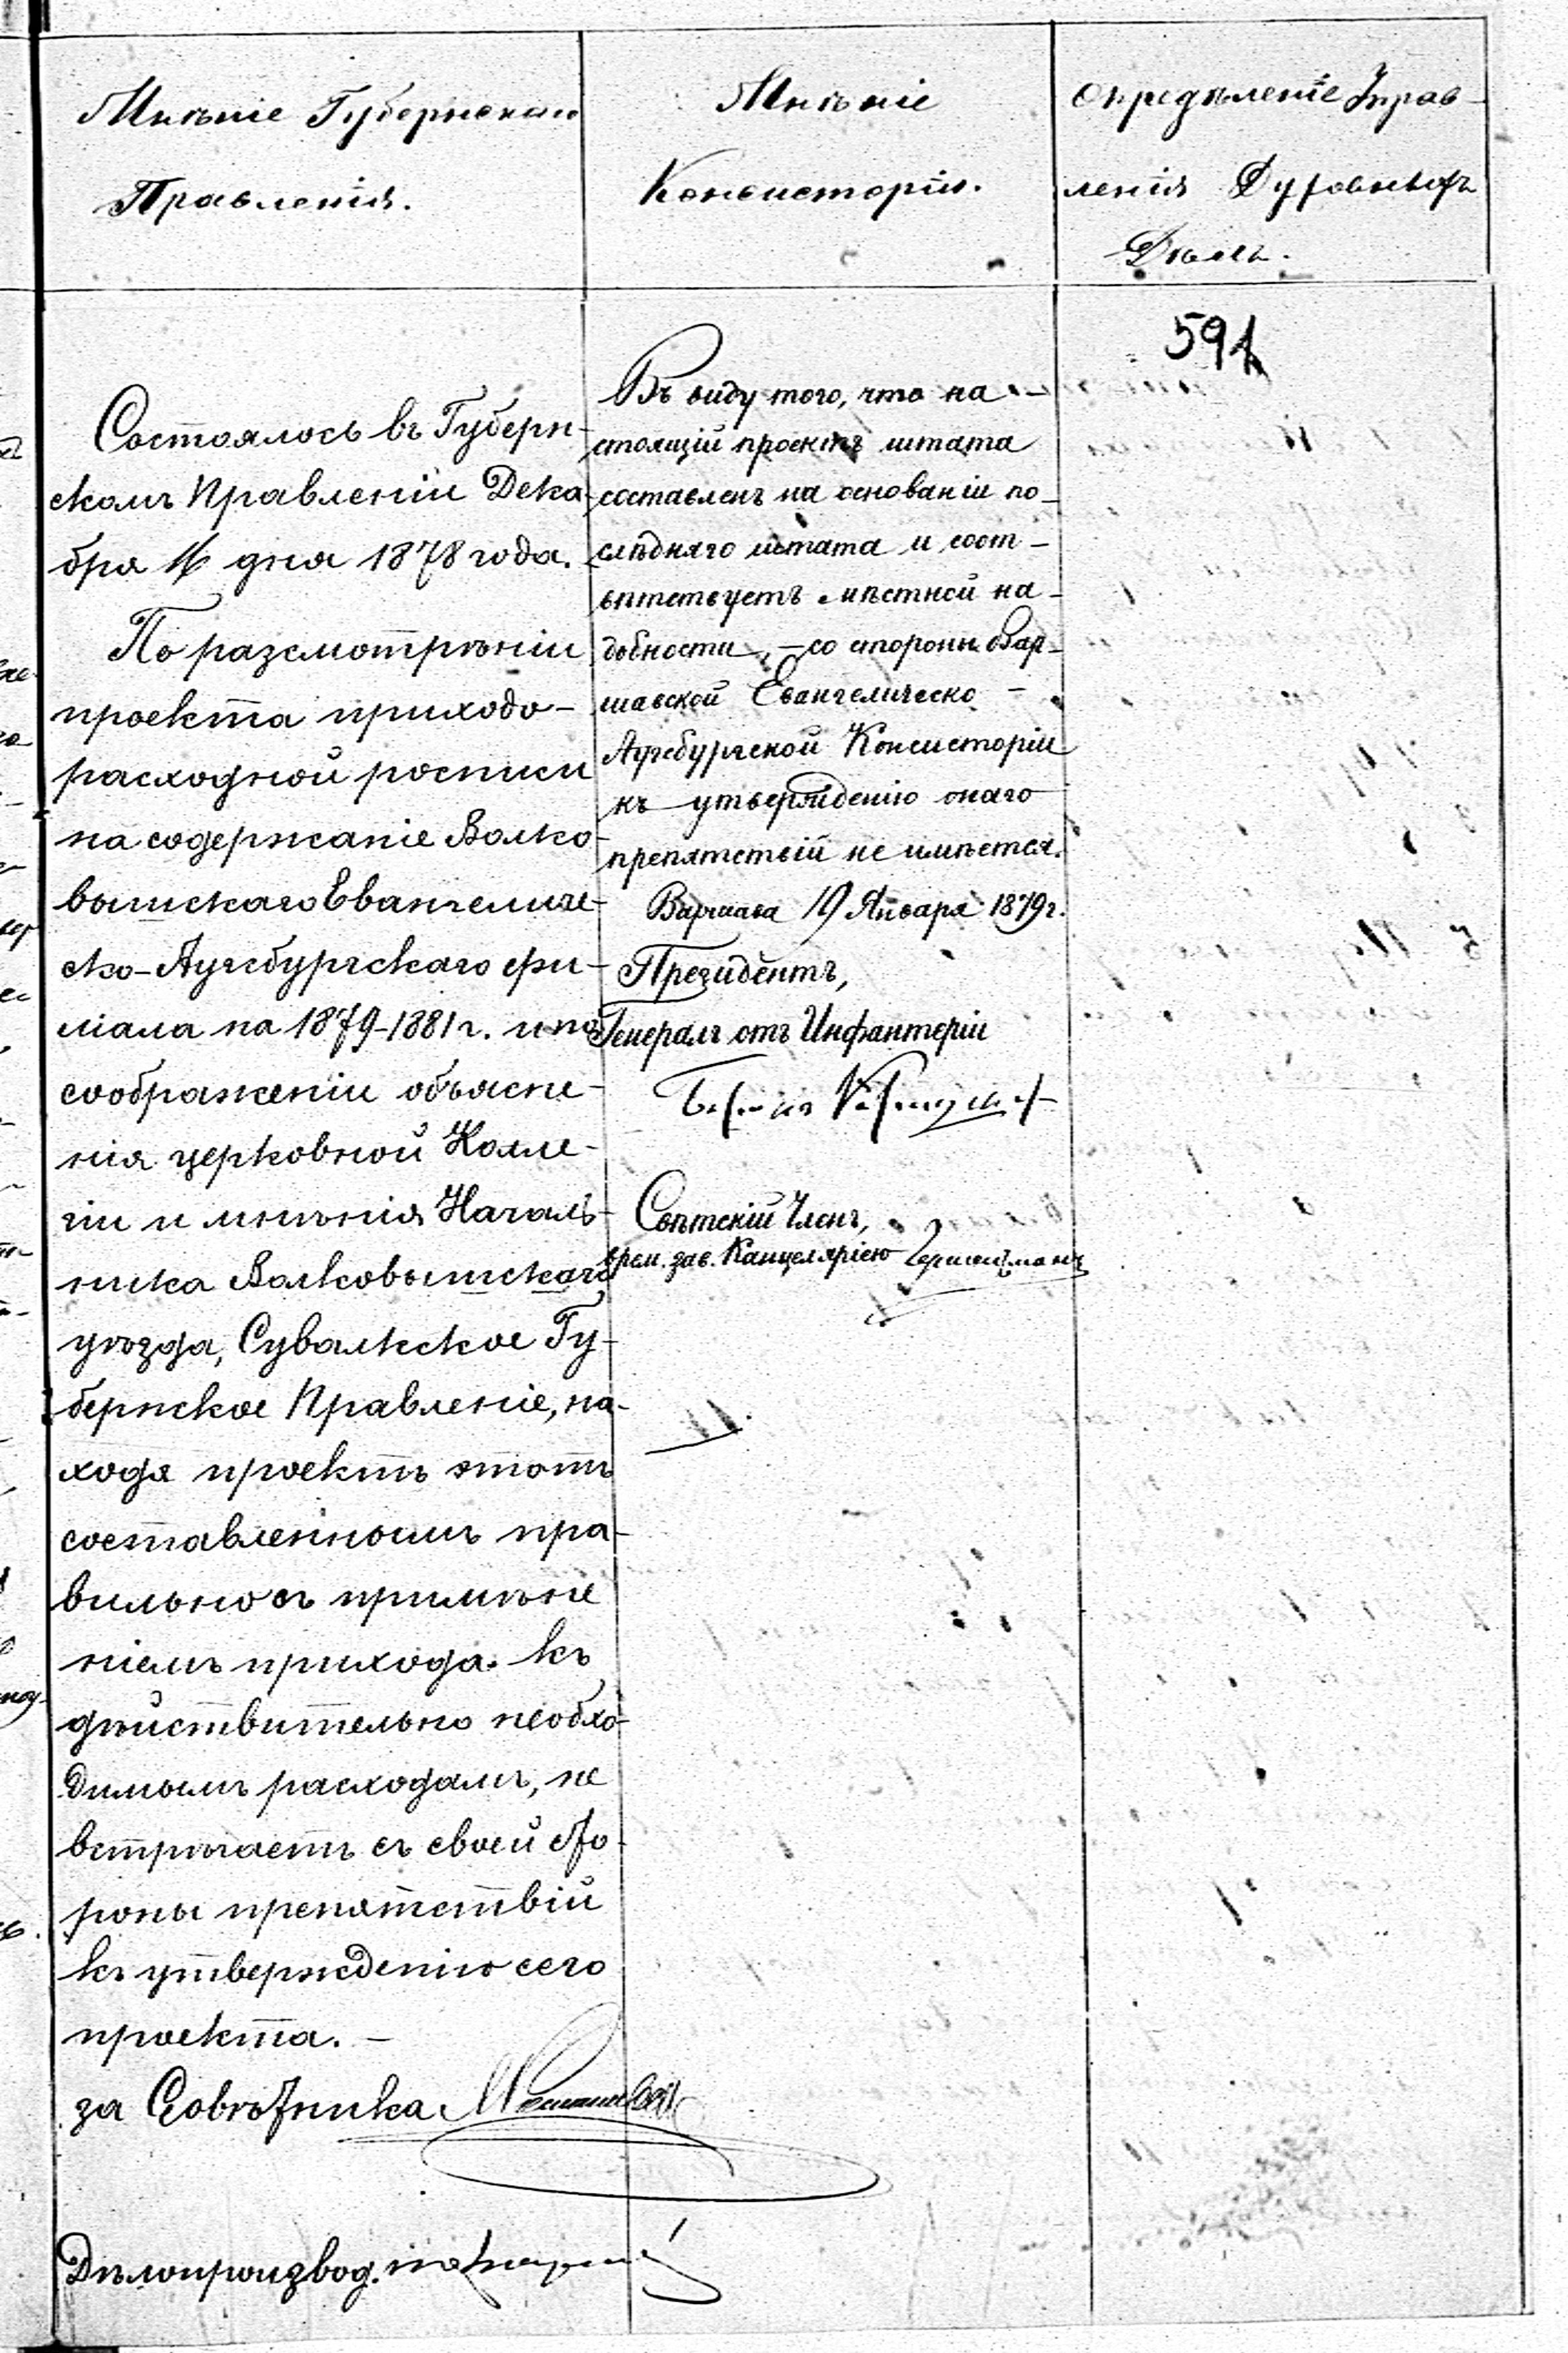 Мнѣніе Губернскаго
Правленія.
Состоялось въ Губерн-
скомъ Правленіи Дека-
бря 16 дня 1878 года.
По разсмотрѣніи
проекта приходо-
расходной росписи
на содержаніе Волко-
вышскаго Евангеличе-
ско-Аугсбургскаго фи-
ліала на 1879-1881 г. и по
соображеніи объясне-
нія церковной Колле-
гіи и мнѣнія Началь-
ника Волковышскаго
уѣзда, Сувалкское Гу-
бернское Правленіе, на-
ходя проектъ этотъ
составленнымъ пра-
вильно съ примѣне
ніемъ прихода къ
дѣйствительно необхо-
димымъ расходамъ, не
встрѣчаетъ съ своей сто-
роны препятствій
къ утвержденію сего
проекта. —
за Совѣтника
Дѣлопроизвод.
Мнѣніе
Консисторіи.
Въ виду того, что на-
стоящій проектъ штата
составленъ на основаніи по-
слѣдняго штата и соот-
вѣтствуетъ мѣстной на-
добности, — со стороны Вар-
шавской Евангелическо-
Аугсбургской Консисторіи
къ утвержденію онаго
препятствій не имѣется.
Варшава 19 Января 1879 г.
Президентъ,
Генералъ отъ Инфантеріи
Свѣтскій Членъ,
врем. зав. Канцеляріею
Опредѣленіе Управ-
ленія Духовныхъ
Дѣлъ.
591